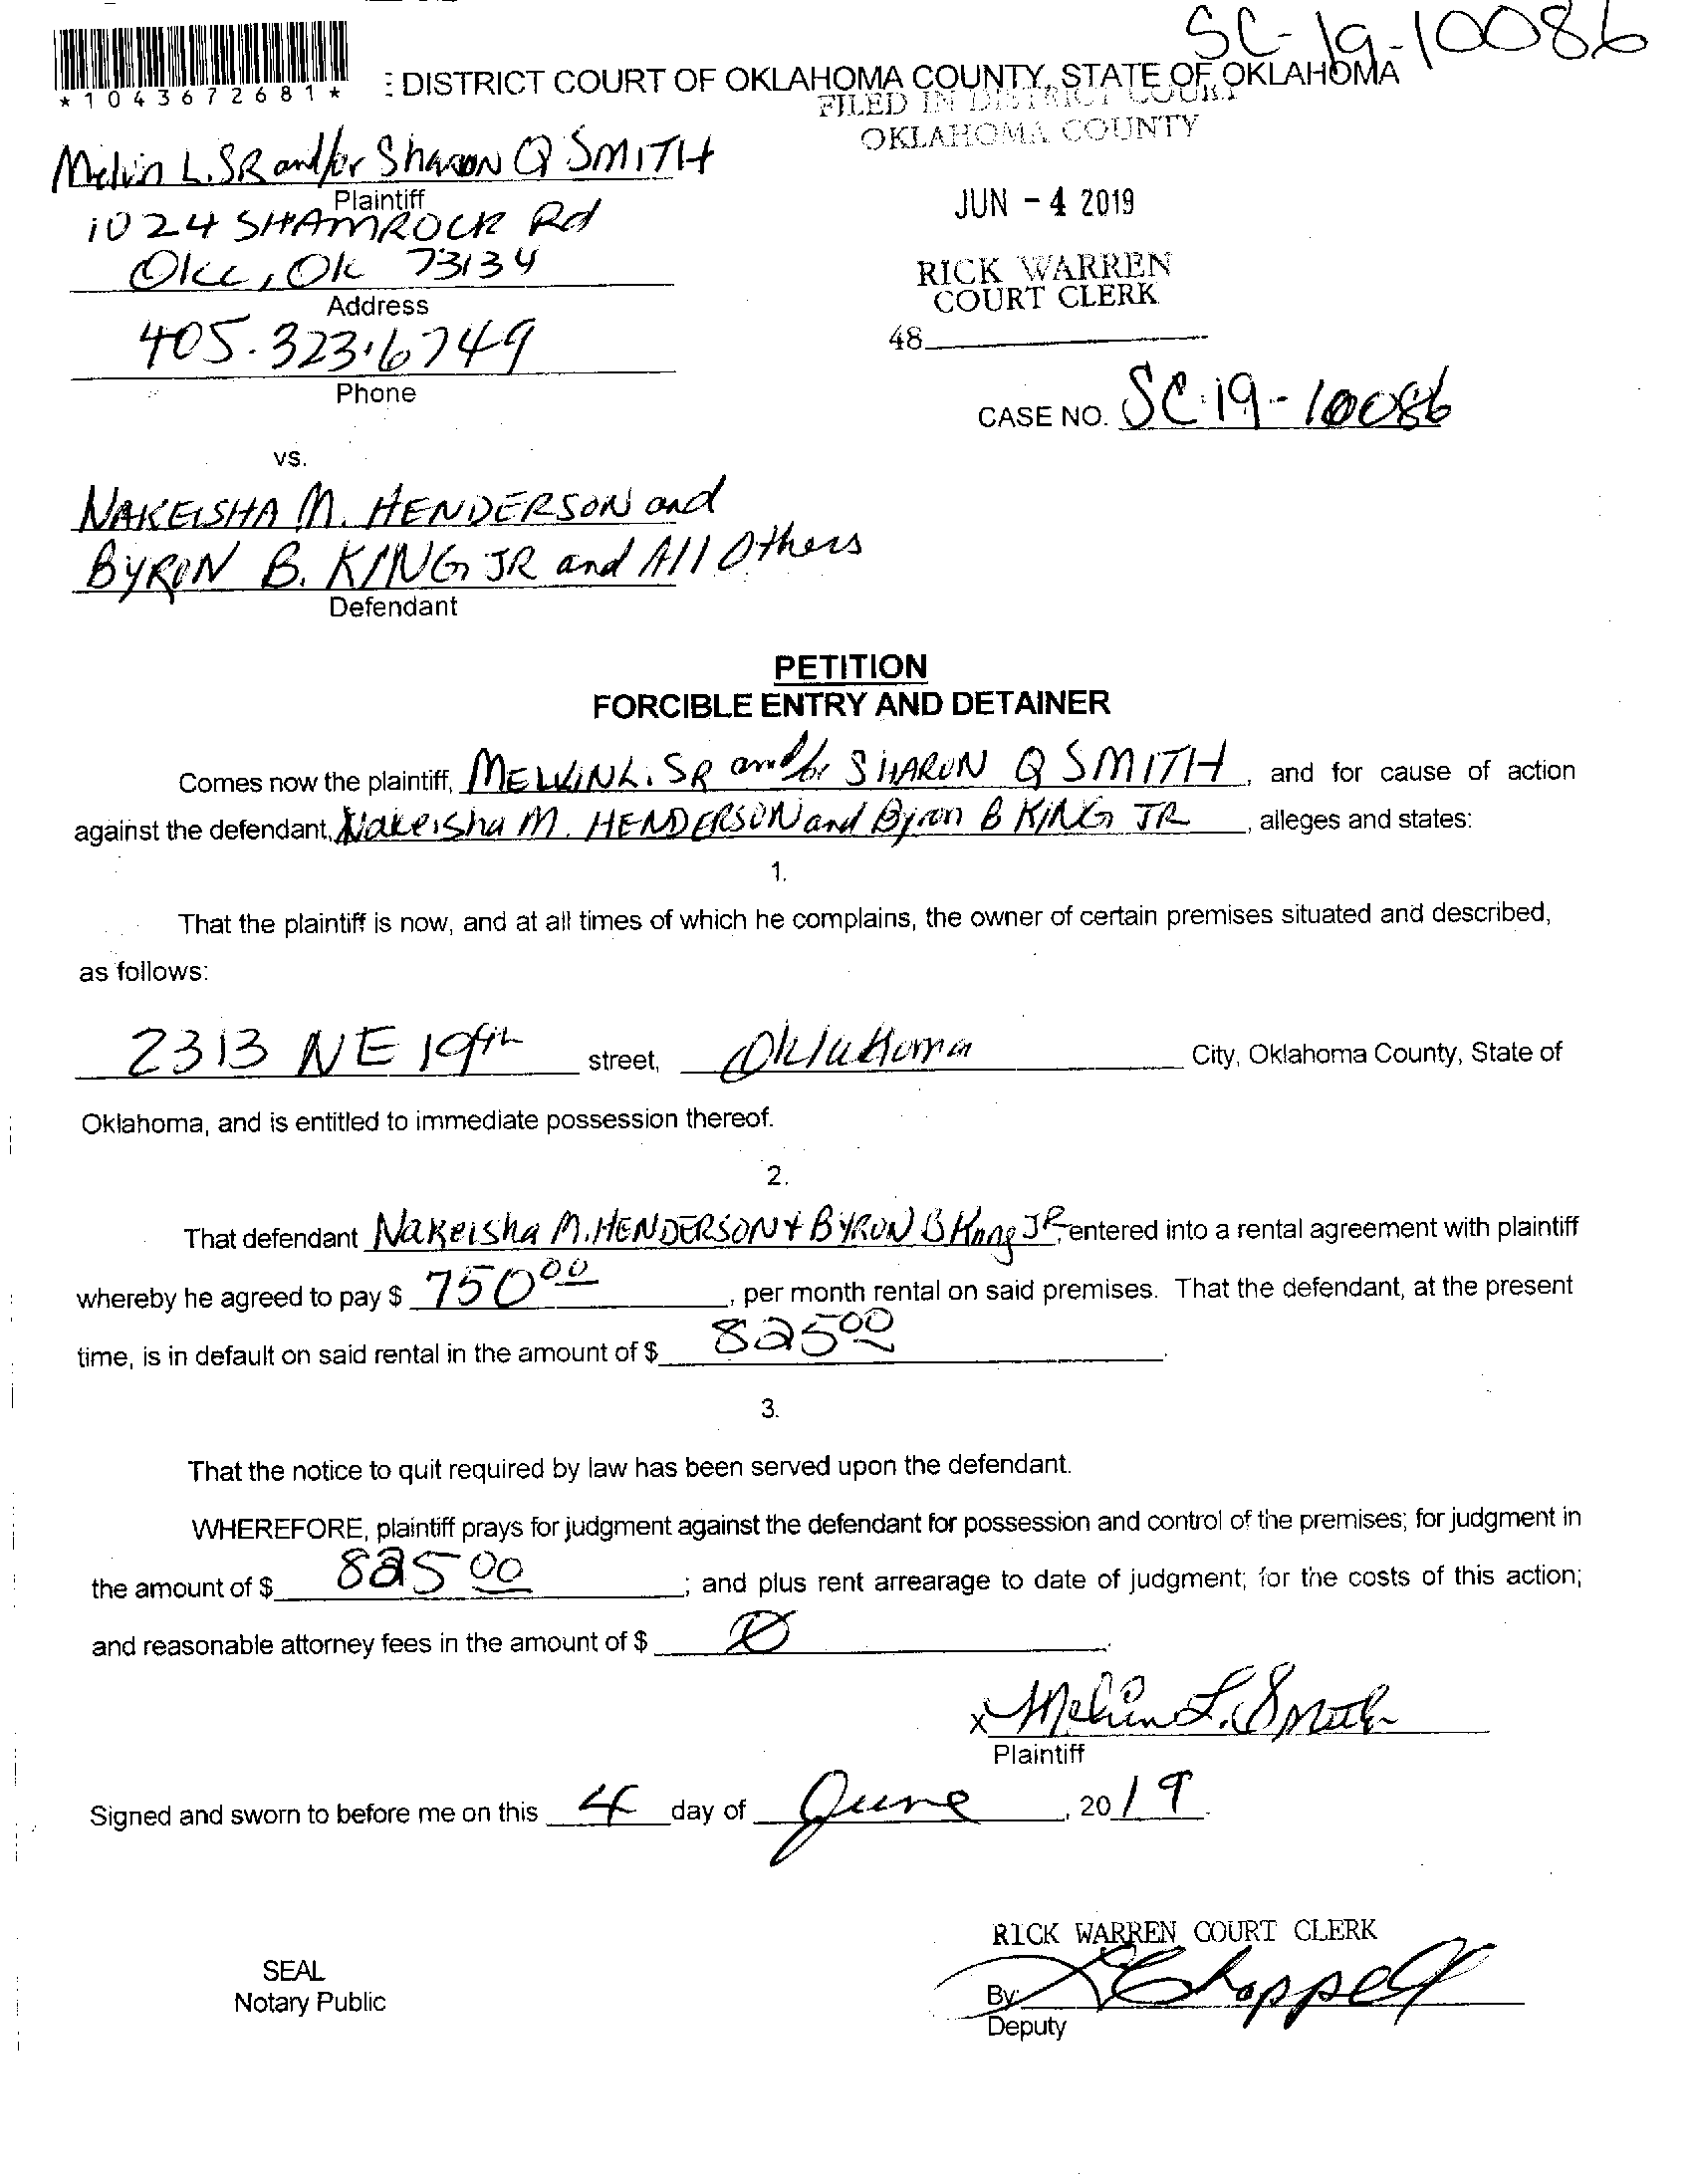 SC-19-10086
*1043672681*
: DISTRICT COURT OF OKLAHOMA COUNTY, STATE OF OKLAHOMA
FILED IN DISTRICT COURT
OKLAHOMA COUNTY
Melvin L. SR and/or Sharon Q SMITH
Plaintiff
JUN - 4 2019
1024 SHAMROCK Rd
OKC, OK 73134
Address
RICK WARREN
COURT CLERK
48
405.323.6749
Phone
CASE NO. SC-19-10086
vs.
NAKEISHA M. HENDERSON and
BYRON B. KING JR and All Others
Defendant
PETITION
FORCIBLE ENTRY AND DETAINER
Comes now the plaintiff, MELVIN L. SR and/or SHARON Q SMITH, and for cause of action
against the defendant, Nakeisha M. HENDERSON and Byron B KING JR, alleges and states:
1.
That the plaintiff is now, and at all times of which he complains, the owner of certain premises situated and described,
as follows:
2313 NE 19th street, Oklahoma City, Oklahoma County, State of
Oklahoma, and is entitled to immediate possession thereof.
2.
That defendant Nakeisha M. HENDERSON + BYRON B King JR, entered into a rental agreement with plaintiff
whereby he agreed to pay $ 750 00, per month rental on said premises. That the defendant, at the present
time, is in default on said rental in the amount of $ 825 00.
3.
That the notice to quit required by law has been served upon the defendant.
WHEREFORE, plaintiff prays for judgment against the defendant for possession and control of the premises; for judgment in
the amount of $ 825 00; and plus rent arrearage to date of judgment; for the costs of this action;
and reasonable attorney fees in the amount of $ Ø.
x Melvin L. Smith
Plaintiff
Signed and sworn to before me on this 4 day of June, 2019.
RICK WARREN COURT CLERK
SEAL
Notary Public
By: Chappell
Deputy